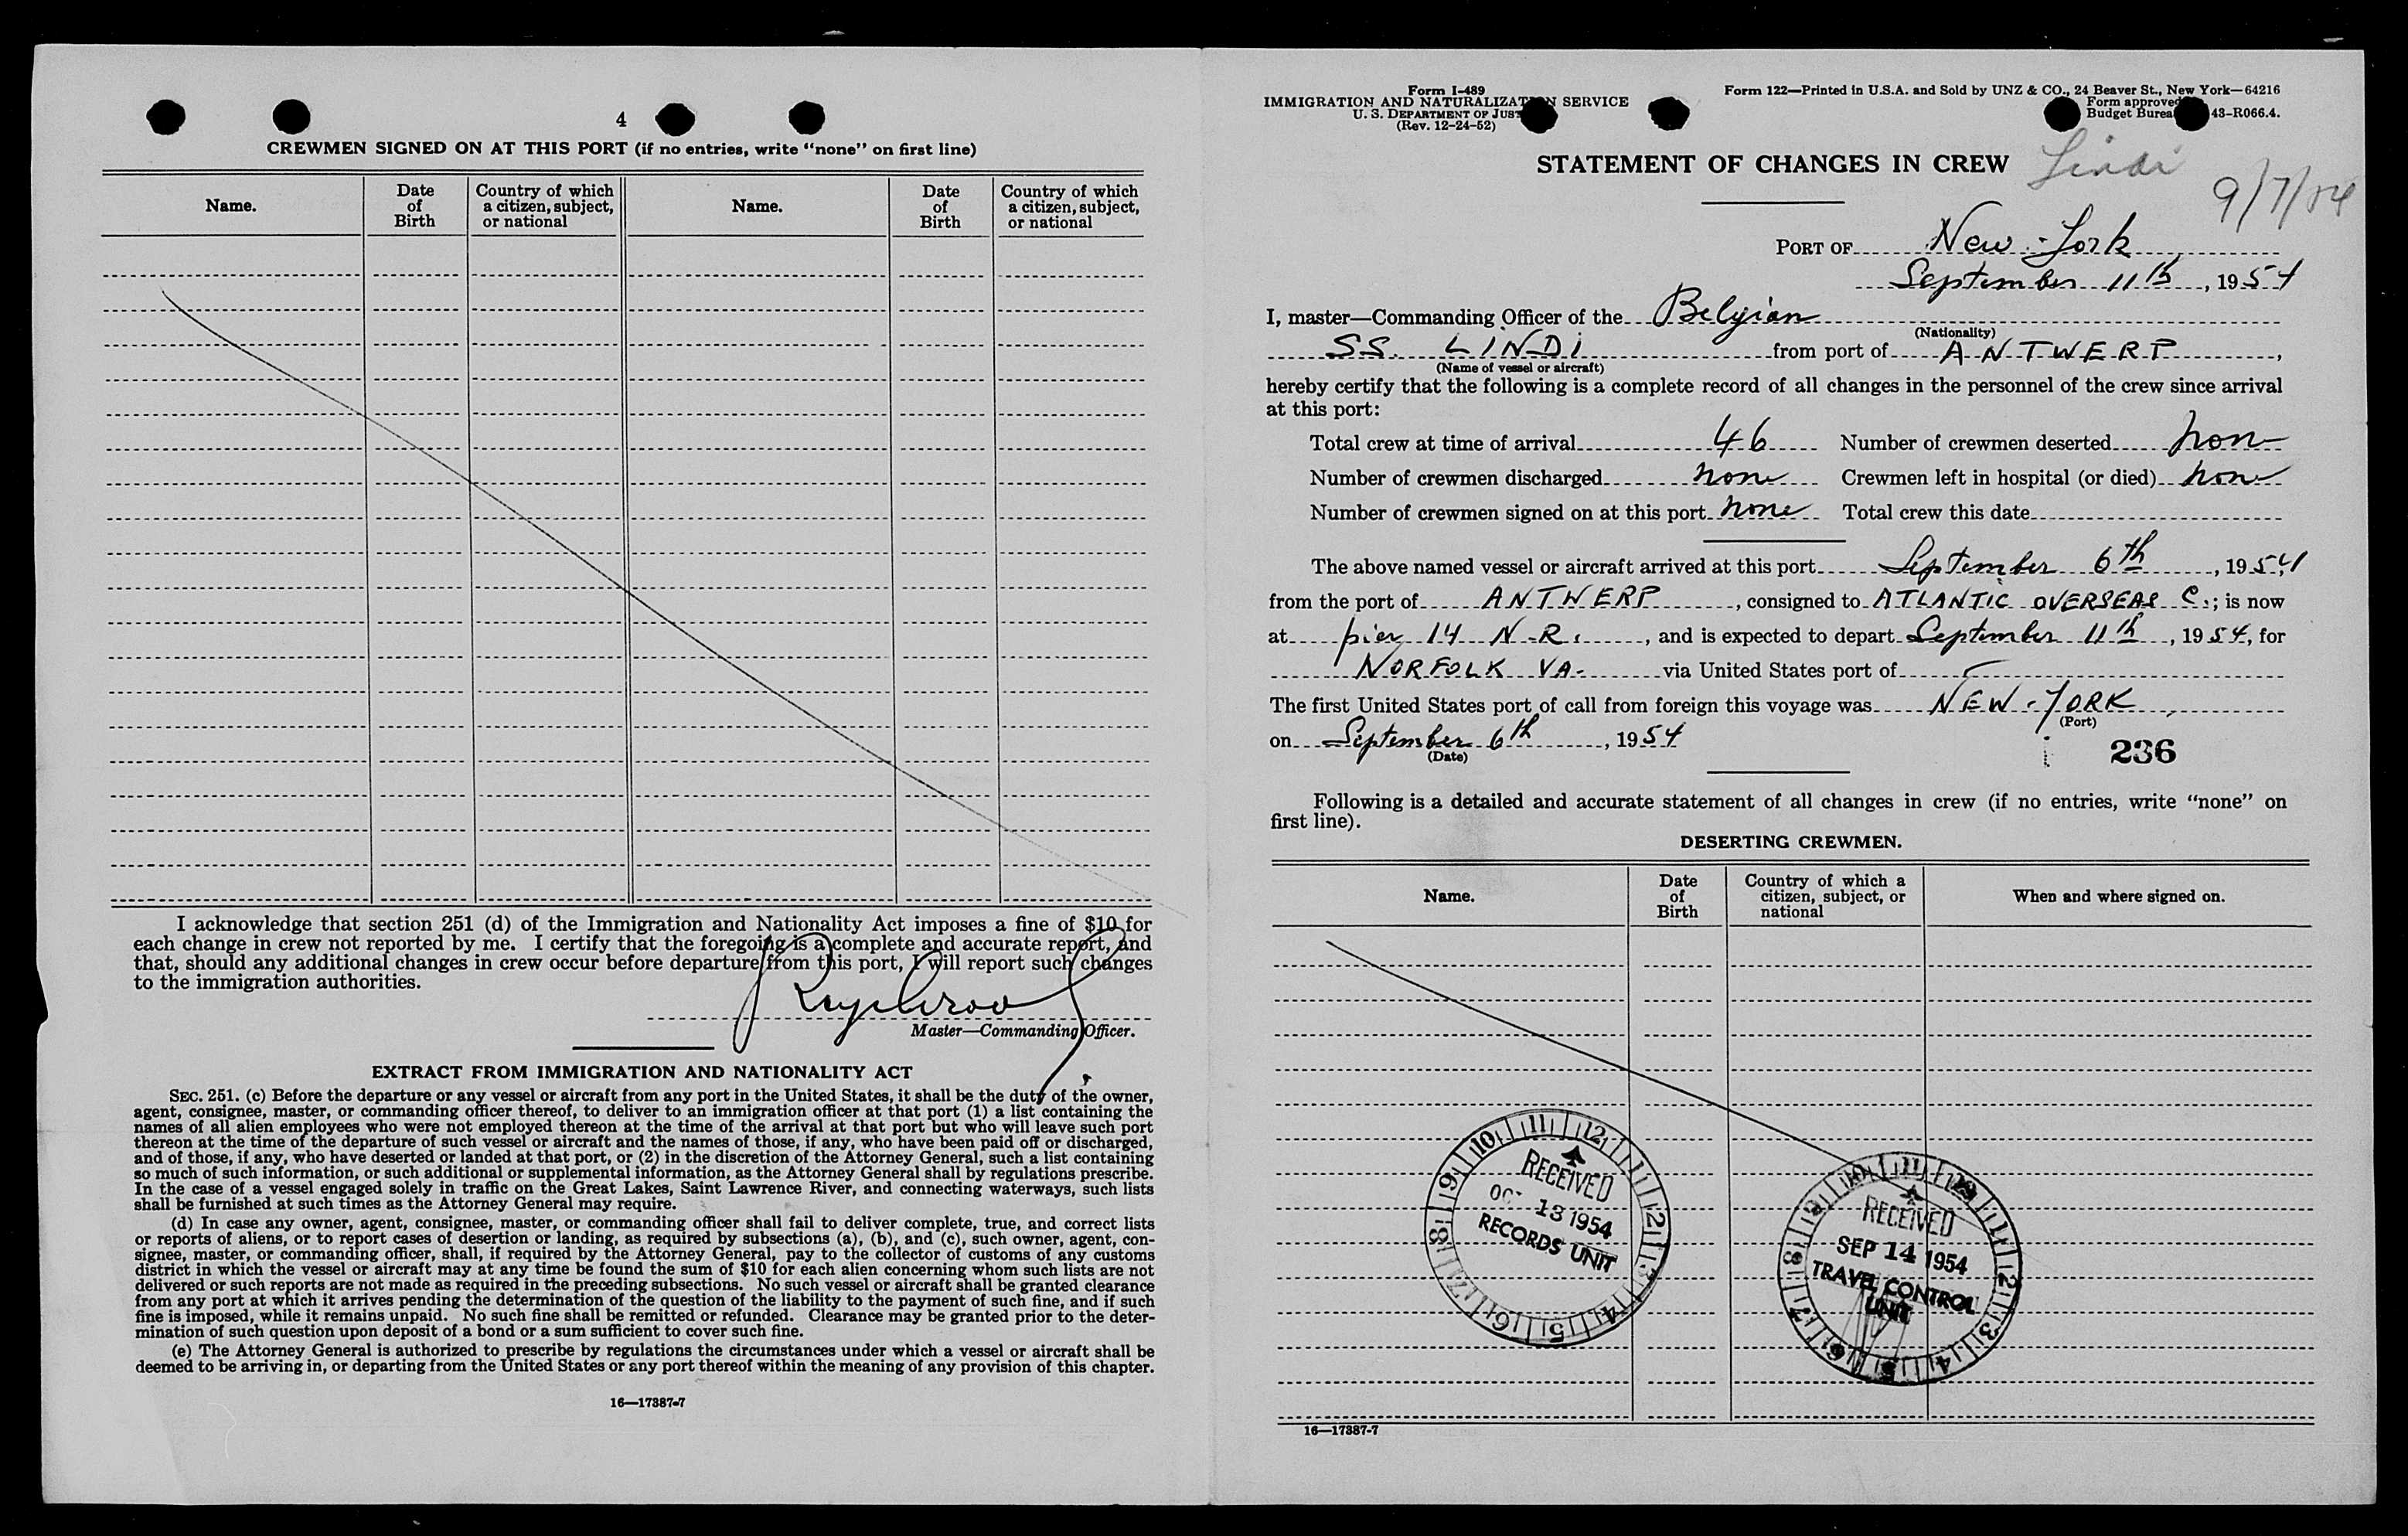 4
CREWMEN SIGNED ON AT THIS PORT (if no entries, write “none” on first line)
Name. Date of Birth Country of which a citizen, subject, or national Name. Date of Birth Country of which a citizen, subject, or national
I acknowledge that section 251 (d) of the Immigration and Nationality Act imposes a fine of $10 for
each change in crew not reported by me. I certify that the foregoing is a complete and accurate report, and
that, should any additional changes in crew occur before departure from this port, I will report such changes
to the immigration authorities.
Master—Commanding Officer.
EXTRACT FROM IMMIGRATION AND NATIONALITY ACT
SEC. 251. (c) Before the departure or any vessel or aircraft from any port in the United States, it shall be the duty of the owner,
agent, consignee, master, or commanding officer thereof, to deliver to an immigration officer at that port (1) a list containing the
names of all alien employees who were not employed thereon at the time of the arrival at that port but who will leave such port
thereon at the time of the departure of such vessel or aircraft and the names of those, if any, who have been paid off or discharged,
and of those, if any, who have deserted or landed at that port, or (2) in the discretion of the Attorney General, such a list containing
so much of such information, or such additional or supplemental information, as the Attorney General shall by regulations prescribe.
In the case of a vessel engaged solely in traffic on the Great Lakes, Saint Lawrence River, and connecting waterways, such lists
shall be furnished at such times as the Attorney General may require.
(d) In case any owner, agent, consignee, master, or commanding officer shall fail to deliver complete, true, and correct lists
or reports of aliens, or to report cases of desertion or landing, as required by subsections (a), (b), and (c), such owner, agent, con-
signee, master, or commanding officer, shall, if required by the Attorney General, pay to the collector of customs of any customs
district in which the vessel or aircraft may at any time be found the sum of $10 for each alien concerning whom such lists are not
delivered or such reports are not made as required in the preceding subsections. No such vessel or aircraft shall be granted clearance
from any port at which it arrives pending the determination of the question of the liability to the payment of such fine, and if such
fine is imposed, while it remains unpaid. No such fine shall be remitted or refunded. Clearance may be granted prior to the deter-
mination of such question upon deposit of a bond or a sum sufficient to cover such fine.
(e) The Attorney General is authorized to prescribe by regulations the circumstances under which a vessel or aircraft shall be
deemed to be arriving in, or departing from the United States or any port thereof within the meaning of any provision of this chapter.
16—17387-7
Form I-489
IMMIGRATION AND NATURALIZATION SERVICE
U. S. DEPARTMENT OF JUST
(Rev. 12-24-52)
Form 122—Printed in U.S.A. and Sold by UNZ & CO., 24 Beaver St., New York—64216
Form approved
Budget Burea 43-R066.4.
STATEMENT OF CHANGES IN CREW Lindi
9/7/54
PORT OF New-York
September 11th, 1954
I, master—Commanding Officer of the Belgian
(Nationality)
SS. LINDI from port of ANTWERP,
(Name of vessel or aircraft)
hereby certify that the following is a complete record of all changes in the personnel of the crew since arrival
at this port:
Total crew at time of arrival 46 Number of crewmen deserted non
Number of crewmen discharged none Crewmen left in hospital (or died) none
Number of crewmen signed on at this port none Total crew this date
The above named vessel or aircraft arrived at this port September 6th, 1954
from the port of ANTWERP, consigned to ATLANTIC OVERSEAS C.; is now
at pier 14 N.R., and is expected to depart September 11th, 1954, for
NORFOLK VA. via United States port of
The first United States port of call from foreign this voyage was NEW-YORK
(Port)
on September 6th, 1954
(Date)
236
Following is a detailed and accurate statement of all changes in crew (if no entries, write “none” on
first line).
DESERTING CREWMEN.
Name. Date of Birth Country of which a citizen, subject, or national When and where signed on.
10 11 12 1 2 3 4 5 6 7 8 9
RECEIVED
OCT 13 1954
RECORDS UNIT
10 11 12 1 2 3 4 5 6 7 8 9
RECEIVED
SEP 14 1954
TRAVEL CONTROL
UNIT
16—17387-7